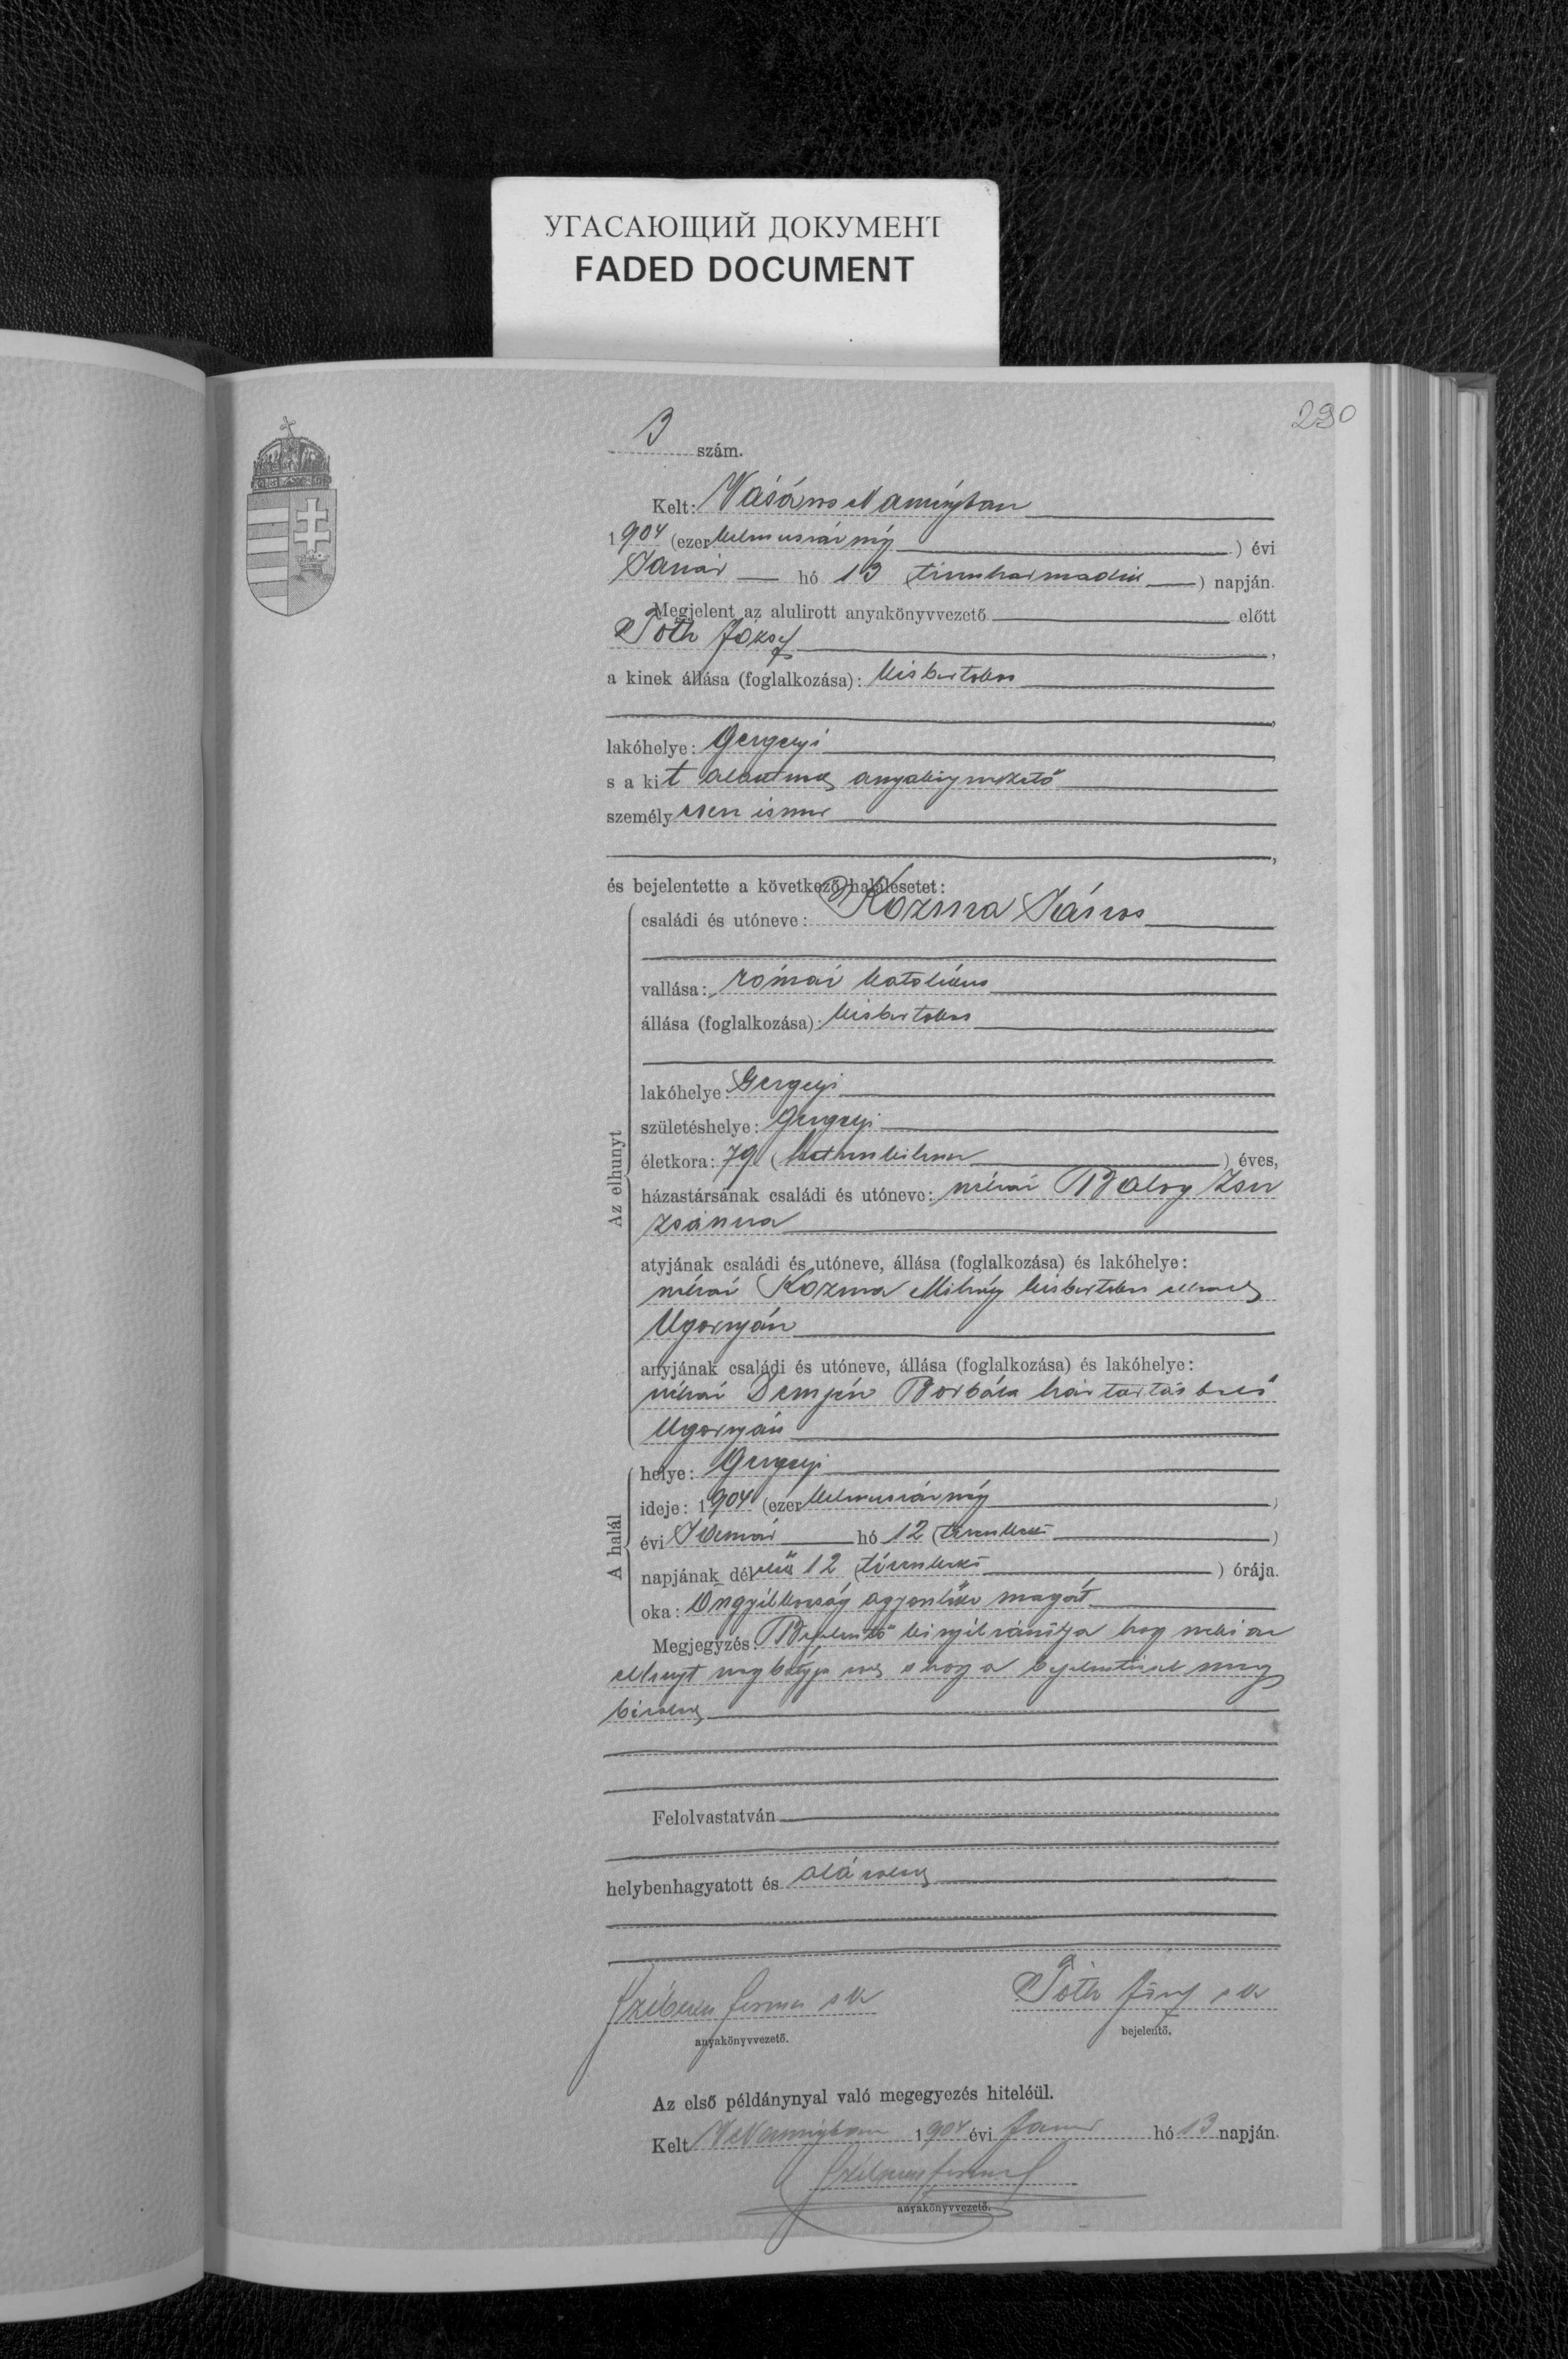 УГАСАЮЩИЙ ДОКУМЕНТ
FADED DOCUMENT
290
3 szám.
Kelt: Vásáros Naményban
1904 (ezerkilenczszáz négy) évi
Január hó 13 (tizenharmadik) napján.
Megjelent az alulirott anyakönyvvezető előtt
Tóth József,
a kinek állása (foglalkozása): kisbirtokos
lakóhelye: Gergelyi
s a kit alantirt anyakönyvvezető
személyesen ismer,
és bejelentette a következő halálesetet:
Az elhunyt
családi és utóneve: Kozma János
vallása: római katolikus
állása (foglalkozása): kisbirtokos
lakóhelye: Gergelyi
születéshelye: Gergelyi
életkora: 79 (hetvenkilencz) éves,
házastársának családi és utóneve: néhai Balog Zsu
zsánna
atyjának családi és utóneve, állása (foglalkozása) és lakóhelye:
néhai Kozma Mihály kisbirtokos
Ugornyán
anyjának családi és utóneve, állása (foglalkozása) és lakóhelye:
néhai Demjén Borbála háztartásbeli
Ugornyán
A halál
helye: Gergelyi
ideje: 1904 (ezerkilenczszáz négy)
évi Január hó 12 (tizenkettő)
napjának délelőtt 12 (tizenkettő) órája.
oka: Öngyilkosság agyonlőtte magát
Megjegyzés: Bejelentő kinyilvánítja hogy neki az
elhunyt nagybátyja volt s hogy a bejelentésnek meg
bízva
Felolvastatván
helybenhagyatott és aláíratott
Ferencz s k Tóth József s k
anyakönyvvezető. bejelentő.
Az első példánynyal való megegyezés hiteléül.
Kelt V Naményban 1904 évi Január hó 13 napján.
Ferencz
anyakönyvvezető.